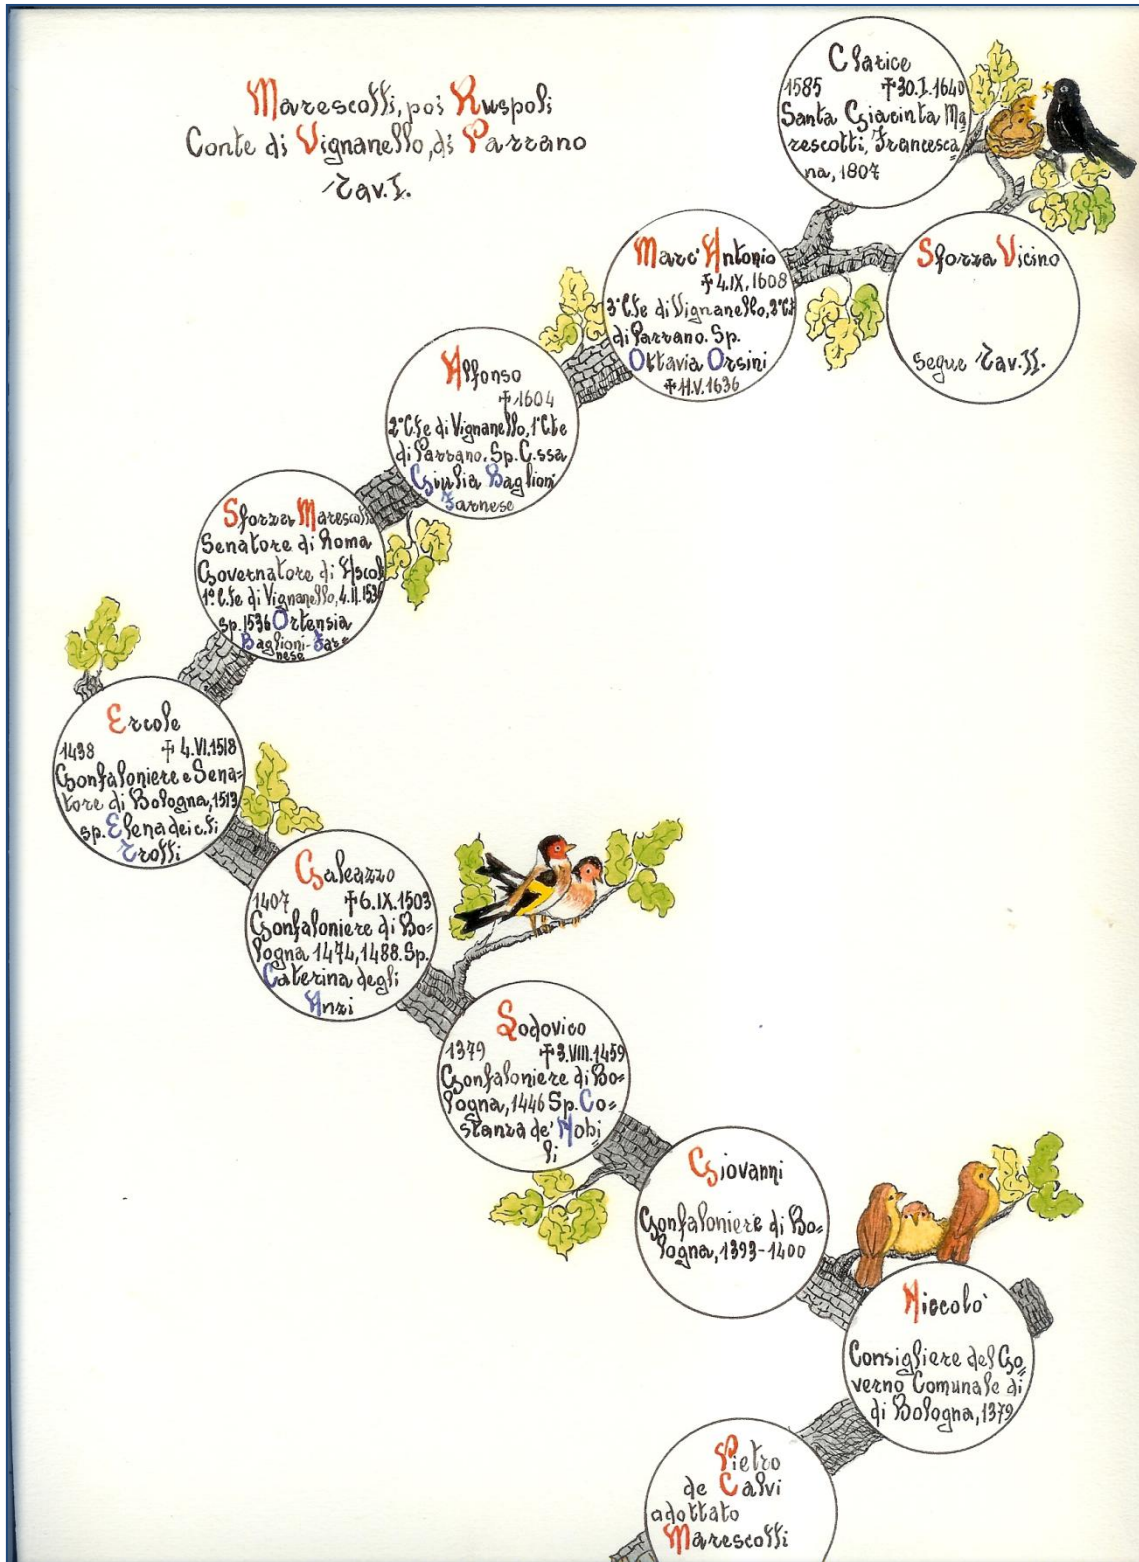 Marescotti, poi Ruspoli
Conte di Vignanello, di Parrano
Tav. I.
Clarice
1585 †30.I.1640
Santa Giacinta Ma=
rescotti, Francesca=
na, 1807
Sforza Vicino
segue Tav. II.
Marc'Antonio
†4.IX.1608
3°C.te di Vignanello, 2°C.te
di Parrano. Sp.
Ottavia Orsini
†11.V.1636
Alfonso
†1604
2°C.te di Vignanello, 1°C.te
di Parrano. Sp. C.ssa
Giulia Baglioni
Farnese
Sforza Marescotti
Senatore di Roma
Governatore di Ascoli
1°C.te di Vignanello, 4.II.1536
sp. 1536 Ortensia
Baglioni-Far=
nese
Ercole
1438 †4.VI.1518
Gonfaloniere e Sena=
tore di Bologna, 1513
sp. Elena dei c.ti
Trotti
Galeazzo
1407 †6.IX.1503
Gonfaloniere di Bo=
logna 1474, 1488. Sp.
Caterina degli
Anzi
Lodovico
1379 †3.VIII.1459
Gonfaloniere di Bo=
logna, 1446 Sp. Co=
stanza de' Nobi=
li
Giovanni
Gonfaloniere di Bo=
logna, 1393-1400
Niccolò
Consigliere del Go=
verno Comunale di
di Bologna, 1379
Pietro
de Calvi
adottato
Marescotti